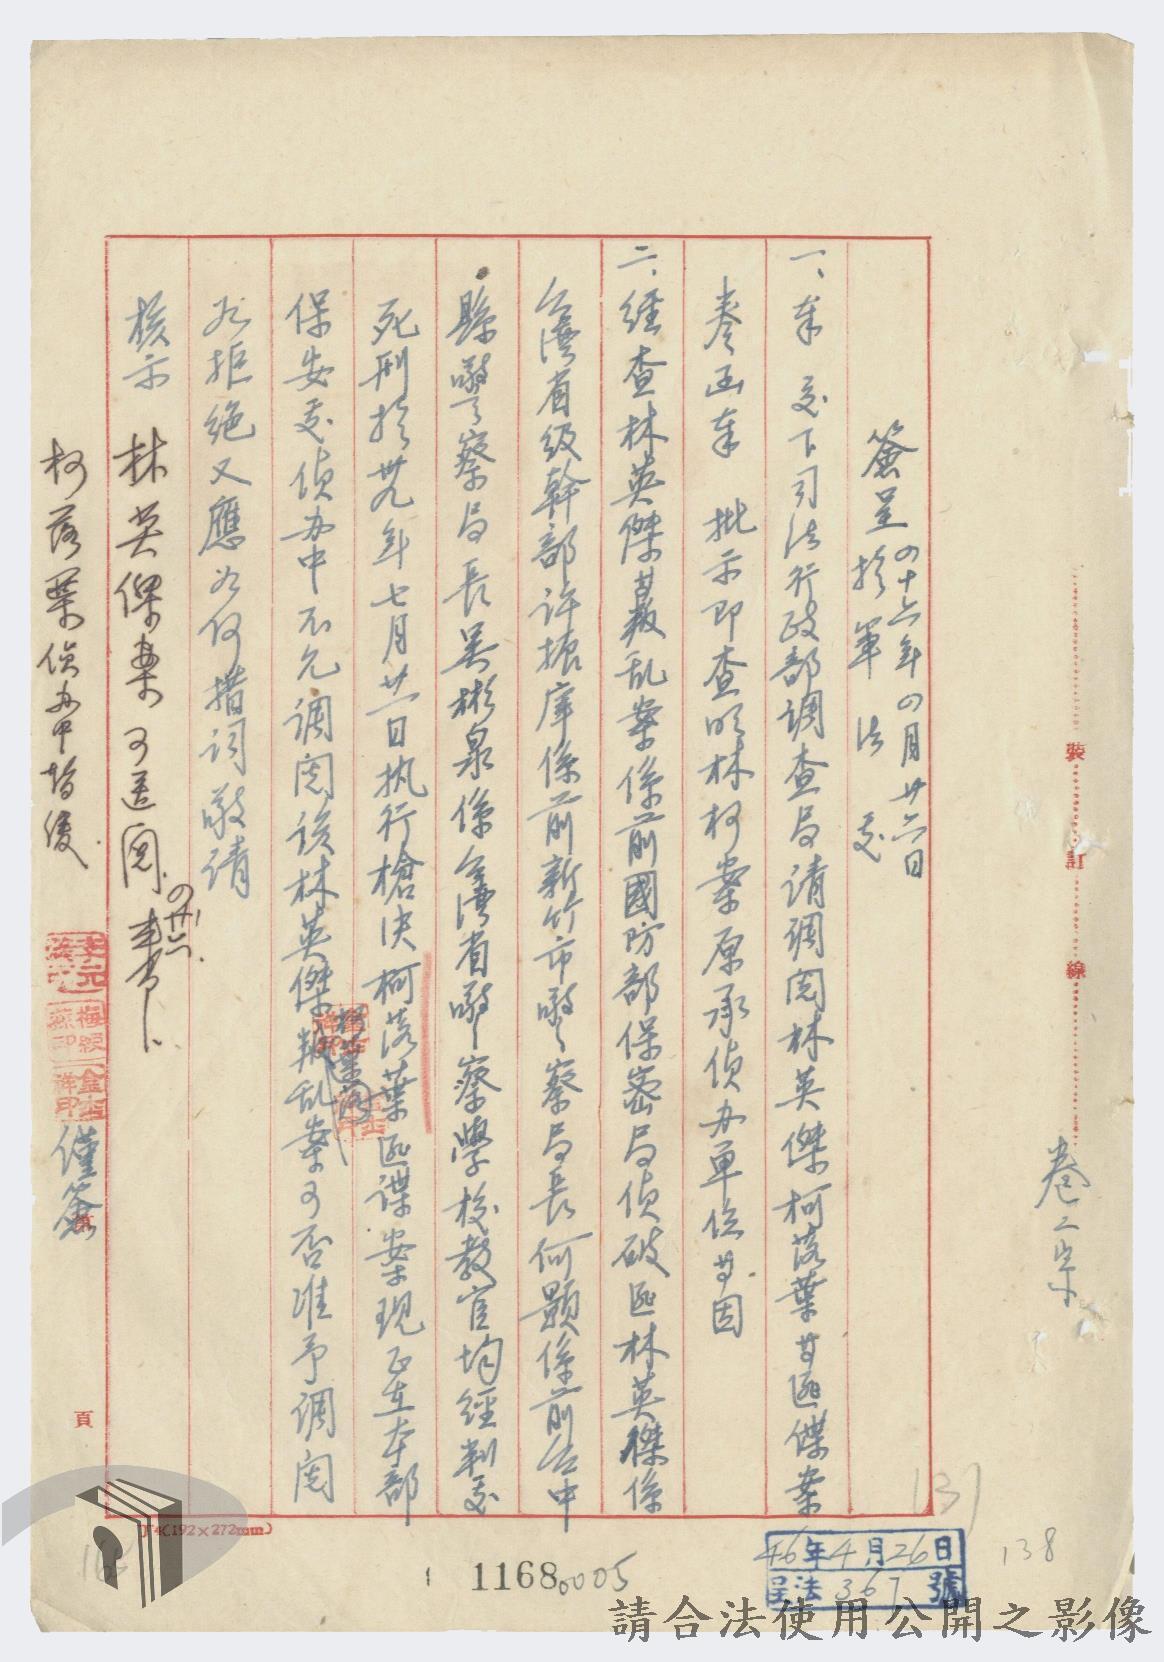 簽呈 四十六年四月廿六日
於軍法處
一、奉 交下司法行政部調查局請調閱林英傑柯落葉等匪諜案
卷函奉 批示即查明林柯案原承偵办單位等因
二、經查林英傑等叛乱案係前國防部保密局偵破匪林英傑係
台灣省級幹部許振庠係前新竹市警察局長何顯係前台中
縣警察局長吳彬泉係台灣省警察學校教官均經判處
死刑於卅九年七月廿一日执行槍决柯落葉匪諜案現正在本部
保安處偵办中不允調閱該林英傑叛乱案可否准予調閱
如拒绝又應如何措词敬請
核示
林英傑案可送閱
四廿六
柯落葉偵办中暫緩
謹簽
卷二宗
裝訂線
頁
(192×272mm)
137
138
46年4月26日
呈法 367 號
11680005
請合法使用公開之影像